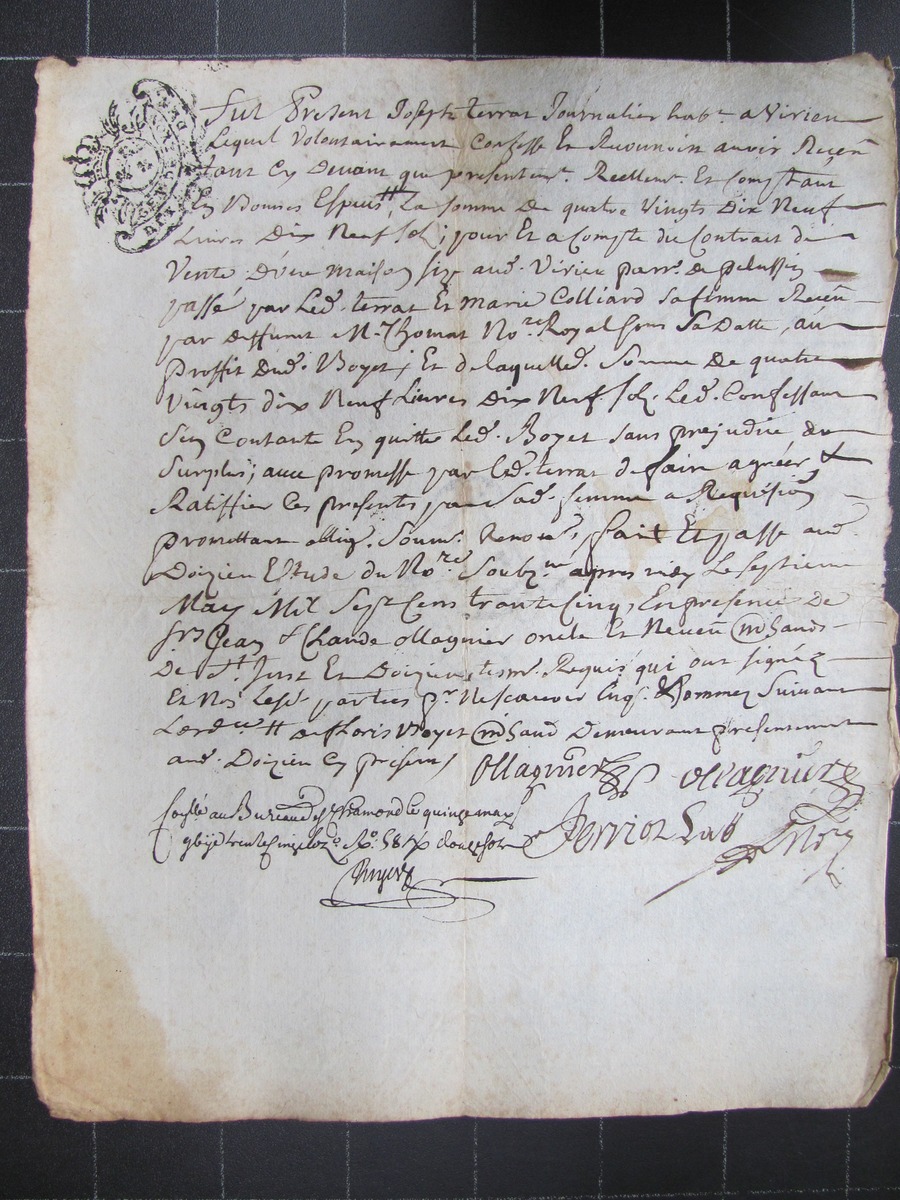 Fut Present Joseph terrat Journalier habt. a Virieu
Lequel Volontairement Confesse Et Reconnoist avoir Receu
tant Cy Devant que presentemt. Reellemt. Et Comptant
En Bonnes Especes la somme De quatre Vingts Dix Neuf
Livres Dix Neuf sols; pour Et a Compte du Contrat de
Vente D'une maison size aud. Virieu parr. de pelussin
passé par Led. terrat Et marie Colliard sa femme Receu
par deffunt Me. Thomas Nore. Royal sous Sa Datte, au
Proffit Dud. Boyet; Et de laquelle d. Somme De quatre
Vingts dix Neuf Livres Dix Neuf sols. Led. Confessant
Sen Contante En quitte Led. Boyet sans prejudice du
Surplus; avec promesse par led. terrat de faire agréer &
Ratiffier Ces presentes par Sad. femme a Requision
promettant oblig. Soum. Renon. fait Et passé aud.
Doizieu Estude du Nore. Soubz. apres midy Le septieme
May Mil Sept Cens trante Cinq, En presence De
srs Jean & Claude ollagnier oncle Et Neveu mhands
De St. Just Et Doizieu tesm. Requis qui ont signés
Et Non Lesd. parties pr. Ne scavoir Enq. & sommez Suivant
Lordce. Boyet mhand Demeurant presentement
aud. Doizieu Cy present
Ollagnier ollagnier
Collé au Bureau de St Chamond le quinze may
trente cinq fo. 58 douze sols